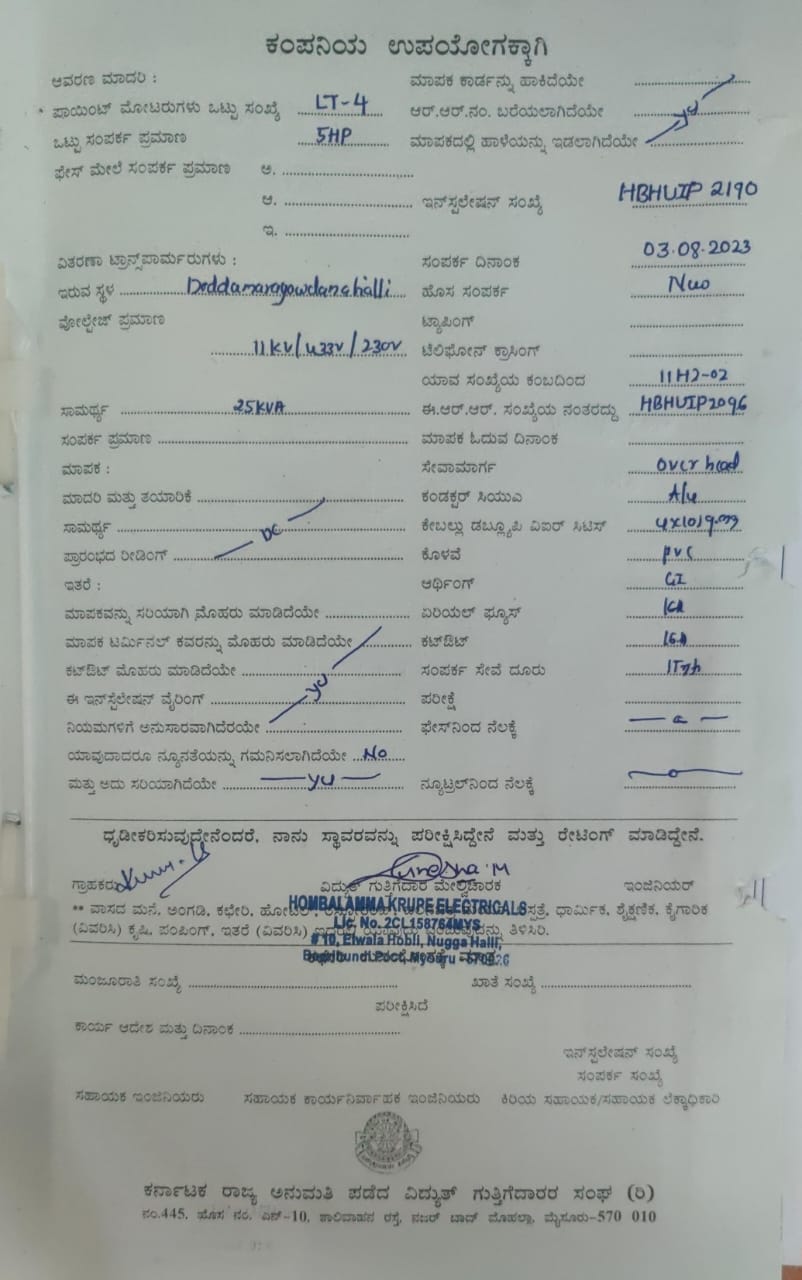 ಕಂಪನಿಯ ಉಪಯೋಗಕ್ಕಾಗಿ
ಆವರಣ ಮಾದರಿ : ಮಾಪಕ ಕಾರ್ಡನ್ನು ಹಾಕಿದೆಯೇ
ಪಾಯಿಂಟ್ ಮೋಟರುಗಳು ಒಟ್ಟು ಸಂಖ್ಯೆ LT-4 ಆರ್.ಆರ್.ನಂ. ಬರೆಯಲಾಗಿದೆಯೇ
ಒಟ್ಟು ಸಂಪರ್ಕ ಪ್ರಮಾಣ 5HP ಮಾಪಕದಲ್ಲಿ ಹಾಳೆಯನ್ನು ಇಡಲಾಗಿದೆಯೇ
ಫೇಸ್ ಮೇಲೆ ಸಂಪರ್ಕ ಪ್ರಮಾಣ ಅ.
ಆ. ಇನ್‌ಸ್ಟಲೇಷನ್ ಸಂಖ್ಯೆ HBHUIP 2190
ಇ.
ವಿತರಣಾ ಟ್ರಾನ್ಸ್‌ಪಾರ್ಮರುಗಳು : ಸಂಪರ್ಕ ದಿನಾಂಕ 03.08.2023
ಇರುವ ಸ್ಥಳ Doddamaragowdanahalli ಹೊಸ ಸಂಪರ್ಕ
ವೋಲ್ಟೇಜ್ ಪ್ರಮಾಣ ಟ್ಯಾಪಿಂಗ್
11KV/433V/230V ಟೆಲಿಫೋನ್ ಕ್ರಾಸಿಂಗ್
ಯಾವ ಸಂಖ್ಯೆಯ ಕಂಬದಿಂದ 11H2-02
ಸಾಮರ್ಥ್ಯ 25KVA ಈ.ಆರ್.ಆರ್. ಸಂಖ್ಯೆಯ ನಂತರದ್ದು HBHUIP2096
ಸಂಪರ್ಕ ಪ್ರಮಾಣ ಮಾಪಕ ಓದುವ ದಿನಾಂಕ
ಮಾಪಕ : ಸೇವಾಮಾರ್ಗ over head
ಮಾದರಿ ಮತ್ತು ತಯಾರಿಕೆ ಕಂಡಕ್ಟರ್ ಸಿಯುಎ Alu
ಸಾಮರ್ಥ್ಯ DC ಕೇಬಲ್ಲು ಡಬ್ಲ್ಯೂಪಿ ವಿಐರ್ ಸಿಟಿಸ್
ಪ್ರಾರಂಭದ ರೀಡಿಂಗ್ ಕೊಳವೆ pvc
ಇತರೆ : ಆರ್ಥಿಂಗ್ GI
ಮಾಪಕವನ್ನು ಸರಿಯಾಗಿ ಮೊಹರು ಮಾಡಿದೆಯೇ ಏರಿಯಲ್ ಫ್ಯೂಸ್
ಮಾಪಕ ಟರ್ಮಿನಲ್ ಕವರನ್ನು ಮೊಹರು ಮಾಡಿದೆಯೇ ಕಟ್‌ಔಟ್
ಕಟ್‌ಔಟ್ ಮೊಹರು ಮಾಡಿದೆಯೇ ಸಂಪರ್ಕ ಸೇವೆ ದೂರು
ಈ ಇನ್‌ಸ್ಟಲೇಷನ್ ವೈರಿಂಗ್ ಪರೀಕ್ಷೆ
ನಿಯಮಗಳಿಗೆ ಅನುಸಾರವಾಗಿದೆರಯೇ ಫೇಸ್‌ನಿಂದ ನೆಲಕ್ಕೆ
ಯಾವುದಾದರೂ ನ್ಯೂನತೆಯನ್ನು ಗಮನಿಸಲಾಗಿದೆಯೇ No
ಮತ್ತು ಅದು ಸರಿಯಾಗಿದೆಯೇ ನ್ಯೂಟ್ರಲ್‌ನಿಂದ ನೆಲಕ್ಕೆ
ಧೃಡೀಕರಿಸುವುದ್ದೇನೆಂದರೆ, ನಾನು ಸ್ಥಾವರವನ್ನು ಪರೀಕ್ಷಿಸಿದ್ದೇನೆ ಮತ್ತು ರೇಟಿಂಗ್ ಮಾಡಿದ್ದೇನೆ.
Suresha.M
ಗ್ರಾಹಕರು ವಿದ್ಯುತ್ ಗುತ್ತಿಗೆದಾರ ಮೇಲ್ವಿಚಾರಕ ಇಂಜಿನಿಯರ್
HOMBALAMMA KRUPE ELECTRICALS
** ವಾಸದ ಮನೆ, ಅಂಗಡಿ, ಕಛೇರಿ, ಧಾರ್ಮಿಕ, ಶೈಕ್ಷಣಿಕ, ಕೈಗಾರಿಕ
Lic. No. 2CL158764MYS
(ವಿವರಿಸಿ) ಕೃಷಿ, ಪಂಪಿಂಗ್, ಇತರೆ (ವಿವರಿಸಿ) ತಿಳಿಸಿರಿ.
# 10, Elwala Hobli, Nugga Halli,
Post, Mysuru
ಮಂಜೂರಾತಿ ಸಂಖ್ಯೆ ಖಾತೆ ಸಂಖ್ಯೆ
ಪರೀಕ್ಷಿಸಿದೆ
ಕಾರ್ಯ ಆದೇಶ ಮತ್ತು ದಿನಾಂಕ
ಇನ್‌ಸ್ಟಲೇಷನ್ ಸಂಖ್ಯೆ
ಸಂಪರ್ಕ ಸಂಖ್ಯೆ
ಸಹಾಯಕ ಇಂಜಿನಿಯರು ಸಹಾಯಕ ಕಾರ್ಯನಿರ್ವಾಹಕ ಇಂಜಿನಿಯರು ಕಿರಿಯ ಸಹಾಯಕ/ಸಹಾಯಕ ಲೆಕ್ಕಾಧಿಕಾರಿ
ಕರ್ನಾಟಕ ರಾಜ್ಯ ಅನುಮತಿ ಪಡೆದ ವಿದ್ಯುತ್ ಗುತ್ತಿಗೆದಾರರ ಸಂಘ (ರಿ)
ನಂ.445, ಹೊಸ ನಂ. ಎನ್-10, ಶಾಲಿವಾಹನ ರಸ್ತೆ, ನಜರ್ ಬಾದ್ ಮೊಹಲ್ಲಾ, ಮೈಸೂರು-570 010